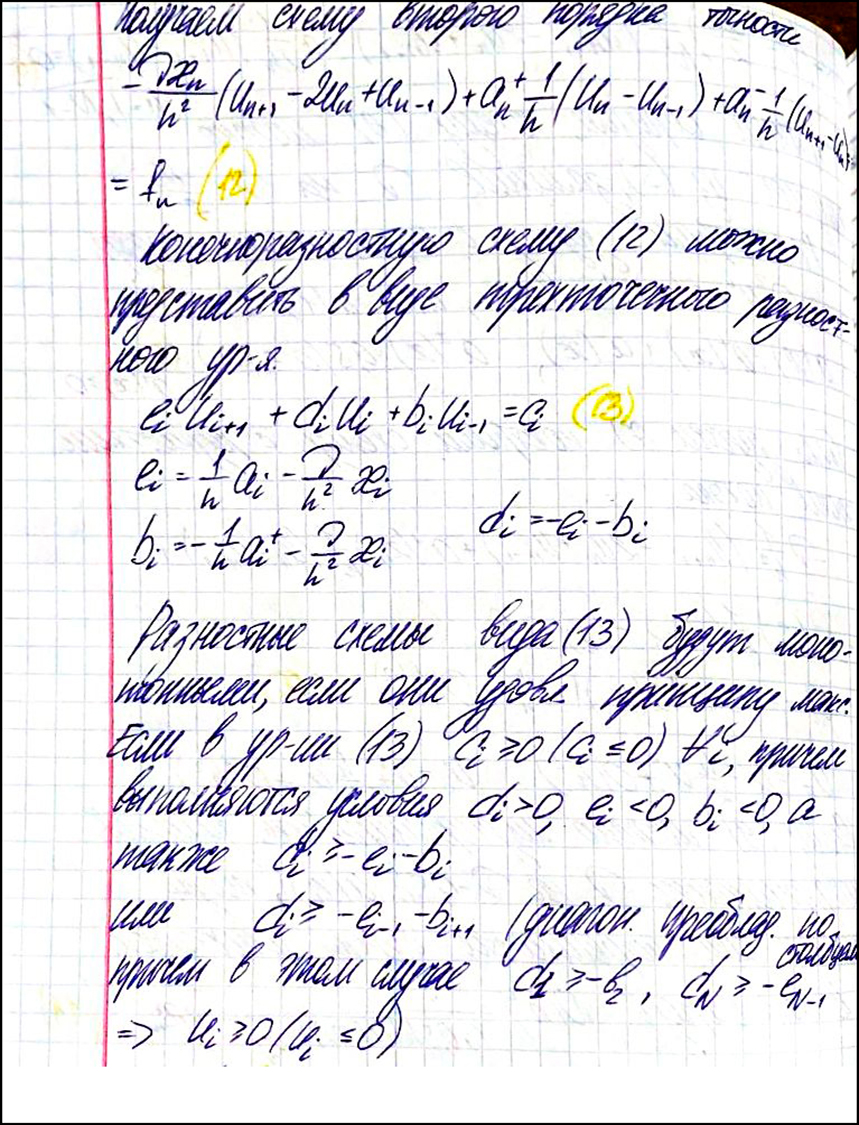 получаем схему второго порядка точности
- νæₙ/h² (uₙ₊₁ - 2uₙ + uₙ₋₁) + aₙ⁺ 1/h (uₙ - uₙ₋₁) + aₙ⁻ 1/h (uₙ₊₁ - uₙ) =
= fₙ (12)
Конечноразностную схему (12) можно
представить в виде трехточечного разност-
ного ур-я.
eᵢ uᵢ₊₁ + dᵢ uᵢ + bᵢ uᵢ₋₁ = cᵢ (13)
eᵢ = 1/h aᵢ⁻ - ν/h² æᵢ
bᵢ = - 1/h aᵢ⁺ - ν/h² æᵢ dᵢ = -eᵢ - bᵢ
Разностные схемы вида (13) будут моно-
тонными, если они удовл принципу макс.
Если в ур-ии (13) cᵢ ≥ 0 (cᵢ ≤ 0) ∀i, причем
выполняются условия dᵢ > 0, eᵢ < 0, bᵢ < 0, а
также dᵢ ≥ -eᵢ - bᵢ
или dᵢ ≥ -eᵢ₋₁ - bᵢ₊₁ (диагон. преоблад. по
столбцам
причем в этом случае d₁ ≥ -b₂, d_N ≥ -e_N₋₁
=> uᵢ ≥ 0 (uᵢ ≤ 0)